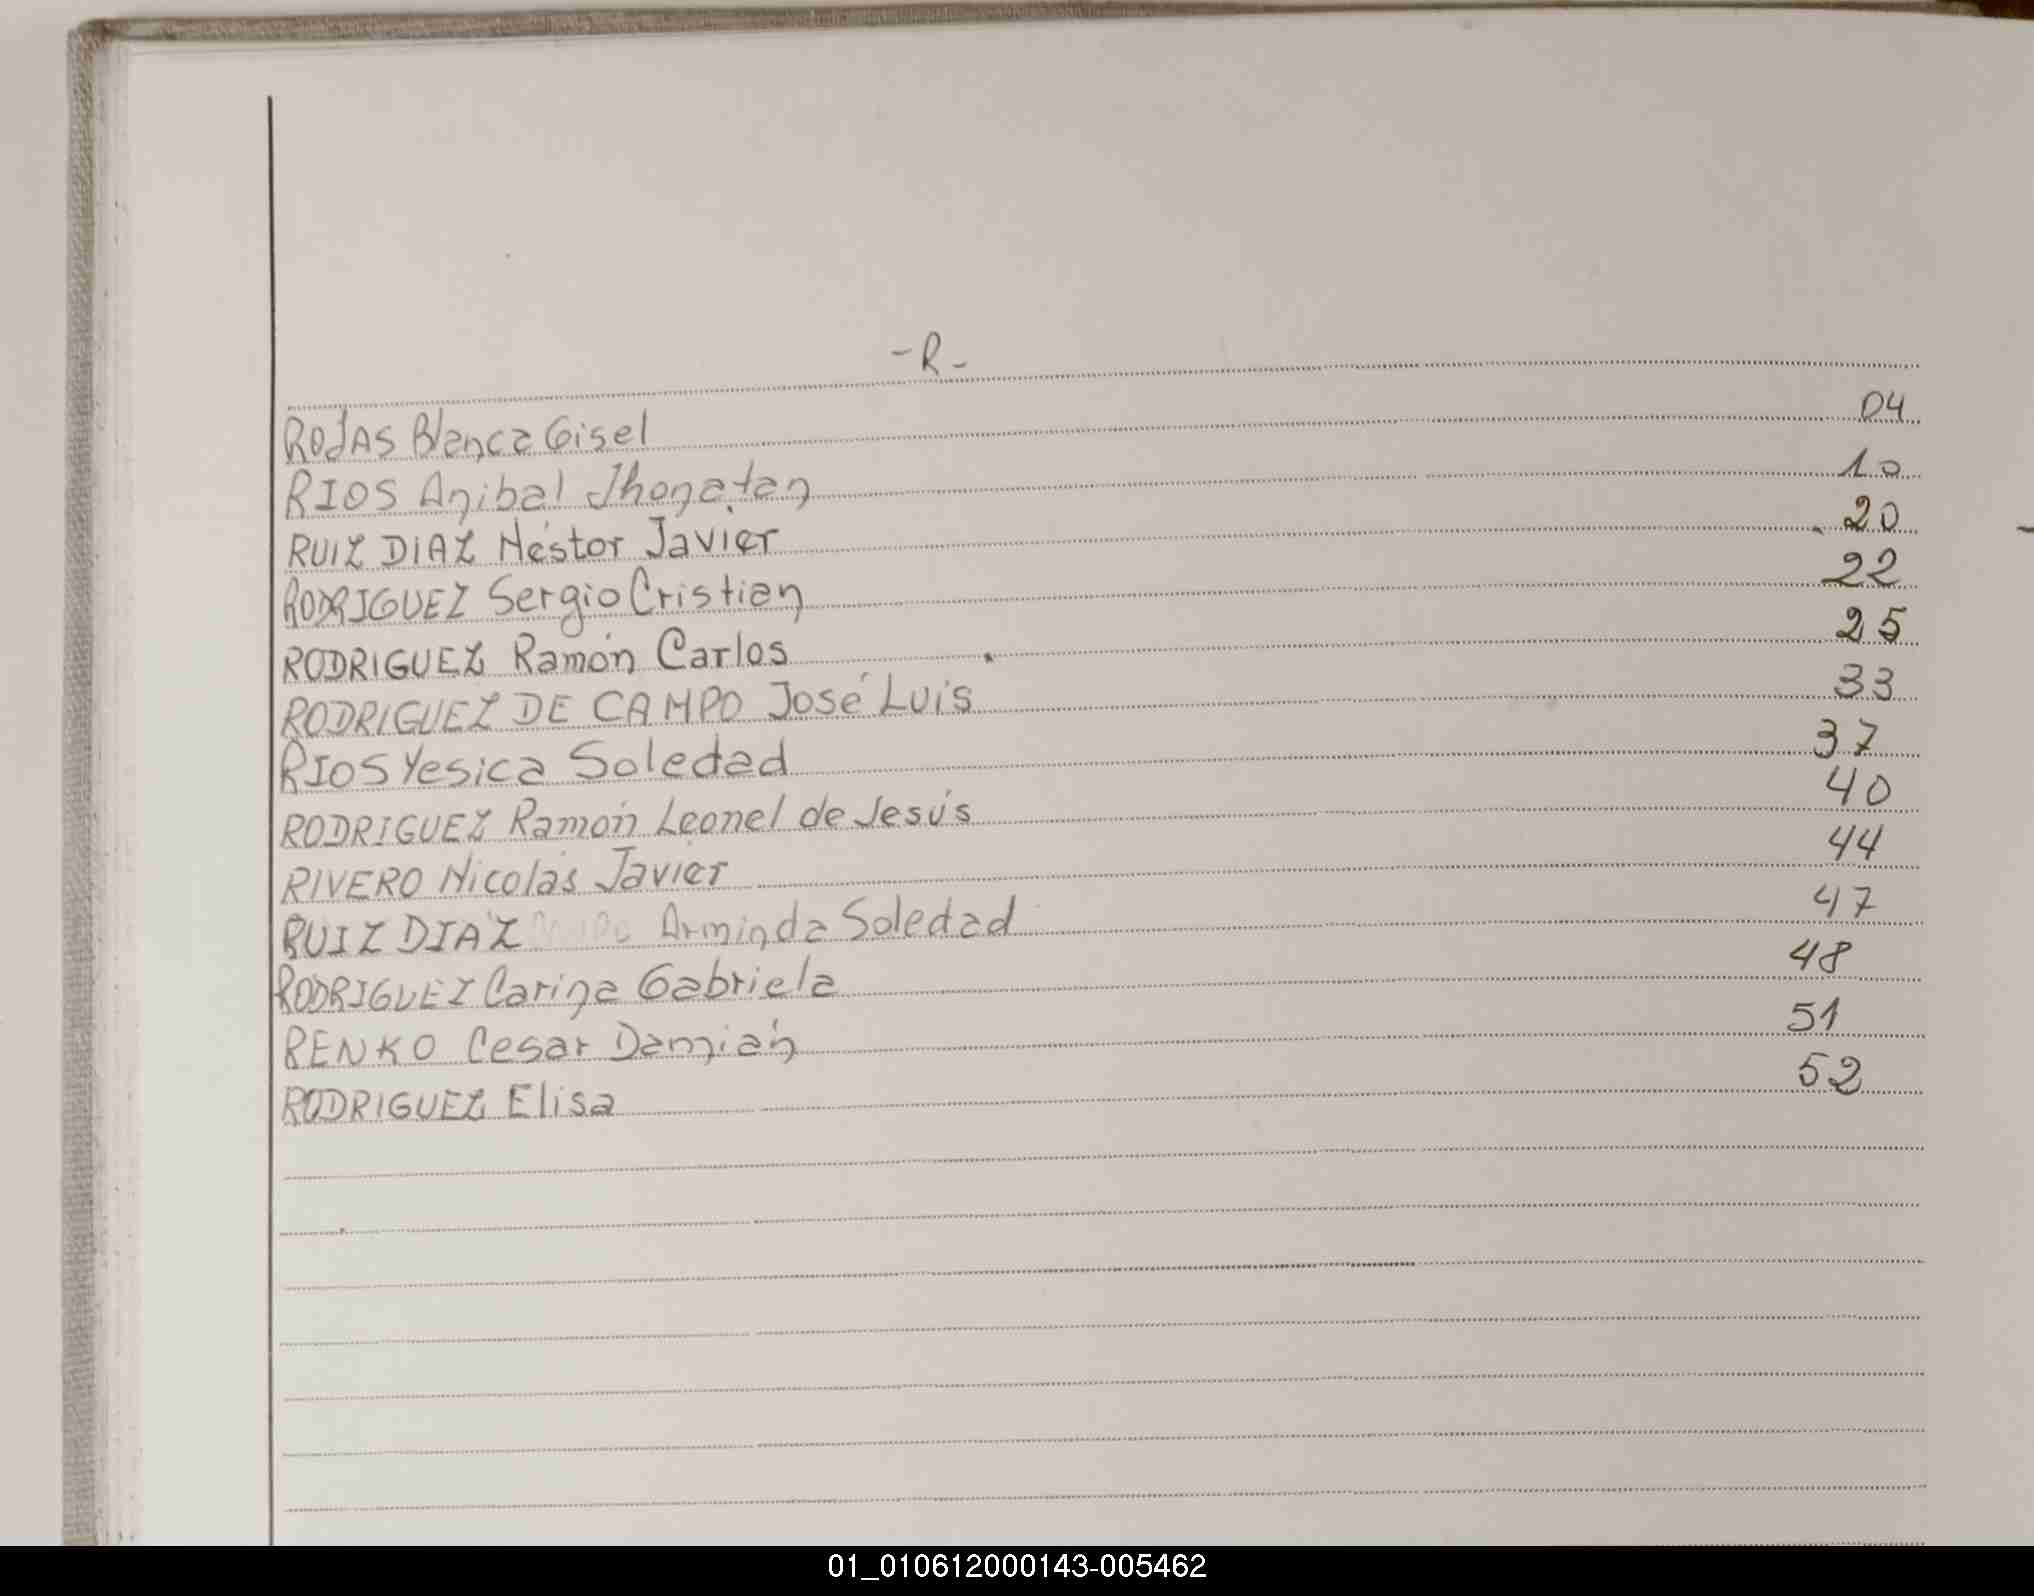 -R-
ROJAS Blanca Gisel 04
RIOS Anibal Jhonatan 10
RUIZ DIAZ Néstor Javier 20
RODRIGUEZ Sergio Cristian 22
RODRIGUEZ Ramón Carlos 25
RODRIGUEZ DE CAMPO José Luis 33
RIOS Yesica Soledad 37
RODRIGUEZ Ramón Leonel de Jesús 40
RIVERO Nicolás Javier 44
RUIZ DIAZ Arminda Soledad 47
RODRIGUEZ Carina Gabriela 48
RENKO Cesar Damián 51
RODRIGUEZ Elisa 52
01_010612000143-005462